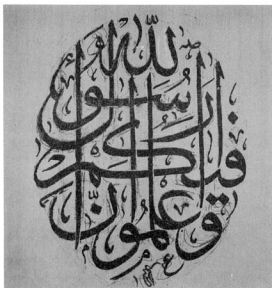 واعلموا أنّ فيكم رسول الله